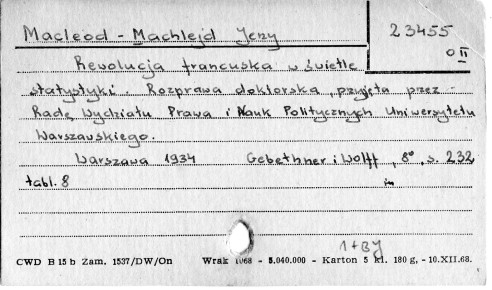 Macleod - Machlejd Jerzy
23455
O II
Rewolucja francuska w świetle
statystyki. Rozprawa doktorska, przyjęta przez
Radę Wydziału Prawa i Nauk Politycznych Uniwersytetu
Warszawskiego.
Warszawa 1934 Gebethner i Wolff, 8°, s. 232
tabl. 8
1+BJ
CWD B 15 b Zam. 1537/DW/On Wrak 1068 - 5.040.000 - Karton 5 kl. 180 g, - 10.XII.68.